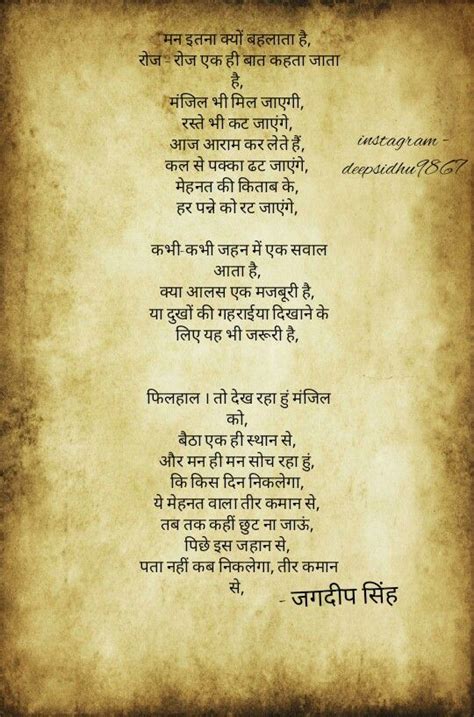 मन इतना क्यों बहलाता है,
रोज - रोज एक ही बात कहता जाता
है,
मंजिल भी मिल जाएगी,
रस्ते भी कट जाएंगे,
आज आराम कर लेते हैं,
कल से पक्का ढट जाएंगे,
मेहनत की किताब के,
हर पन्ने को रट जाएंगे,
instagram -
deepsidhu9867
कभी-कभी जहन में एक सवाल
आता है,
क्या आलस एक मजबूरी है,
या दुखों की गहराईया दिखाने के
लिए यह भी जरूरी है,
फिलहाल । तो देख रहा हुं मंजिल
को,
बैठा एक ही स्थान से,
और मन ही मन सोच रहा हुं,
कि किस दिन निकलेगा,
ये मेहनत वाला तीर कमान से,
तब तक कहीं छुट ना जाऊं,
पिछे इस जहान से,
पता नहीं कब निकलेगा, तीर कमान
से,
- जगदीप सिंह